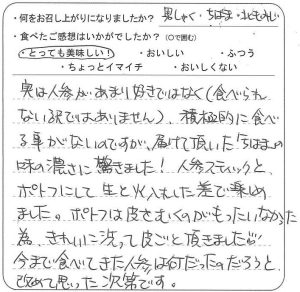 ・何をお召し上がりになりましたか？ 男しゃく・ちはま・北ともみじ
・食べたご感想はいかがでしたか？（○で囲む）
・とっても美味しい！ ・おいしい ・ふつう
・ちょっとイマイチ ・おいしくない
実は人参があまり好きではなく(食べられ
ない訳ではありません)、積極的に食べ
る事がないのですが、届けて頂いた「ちはま」の
味の濃さに驚きました！人参スティックと、
ポトフにして生と火入れした差で楽しめ
ました。ポトフは皮をむくのがもったいなかった
為、きれいに洗って皮ごと頂きました!!
今まで食べてきた人参は何だったのだろうと、
改めて思った次第です。